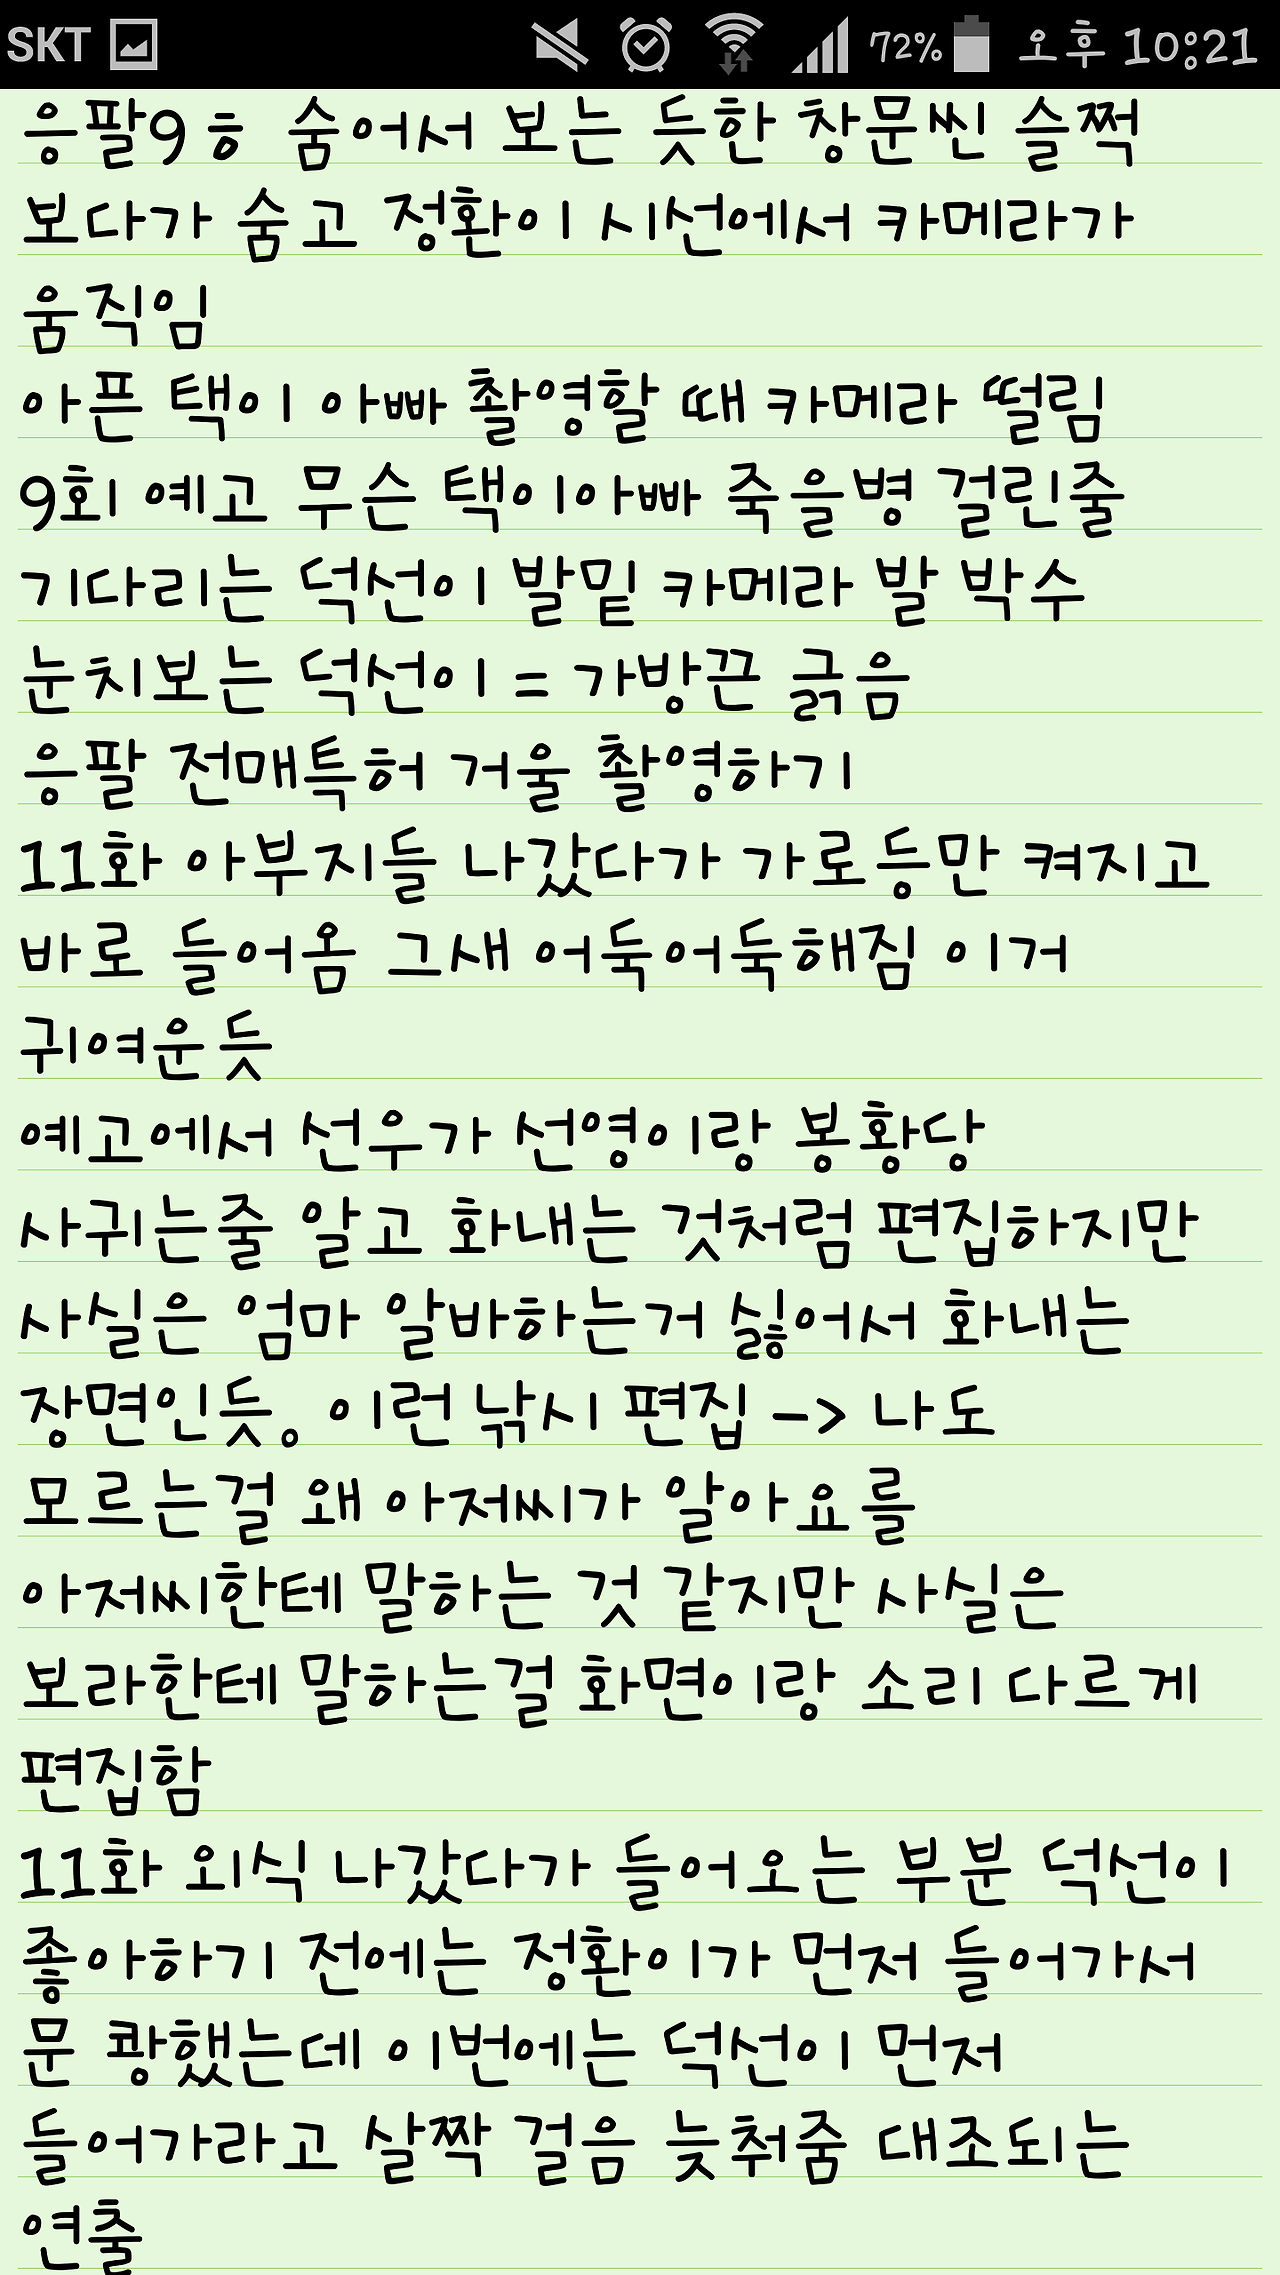 SKT 72% 오후 10:21
응팔9ㅎ 숨어서 보는 듯한 창문씬 슬쩍
보다가 숨고 정환이 시선에서 카메라가
움직임
아픈 택이 아빠 촬영할 때 카메라 떨림
9회 예고 무슨 택이아빠 죽을병 걸린줄
기다리는 덕선이 발밑 카메라 발 박수
눈치보는 덕선이 = 가방끈 긁음
응팔 전매특허 거울 촬영하기
11화 아부지들 나갔다가 가로등만 켜지고
바로 들어옴 그새 어둑어둑해짐 이거
귀여운듯
예고에서 선우가 선영이랑 봉황당
사귀는줄 알고 화내는 것처럼 편집하지만
사실은 엄마 알바하는거 싫어서 화내는
장면인듯。이런 낚시 편집 -> 나도
모르는걸 왜 아저씨가 알아요를
아저씨한테 말하는 것 같지만 사실은
보라한테 말하는걸 화면이랑 소리 다르게
편집함
11화 외식 나갔다가 들어오는 부분 덕선이
좋아하기 전에는 정환이가 먼저 들어가서
문 쾅했는데 이번에는 덕선이 먼저
들어가라고 살짝 걸음 늦춰줌 대조되는
연출